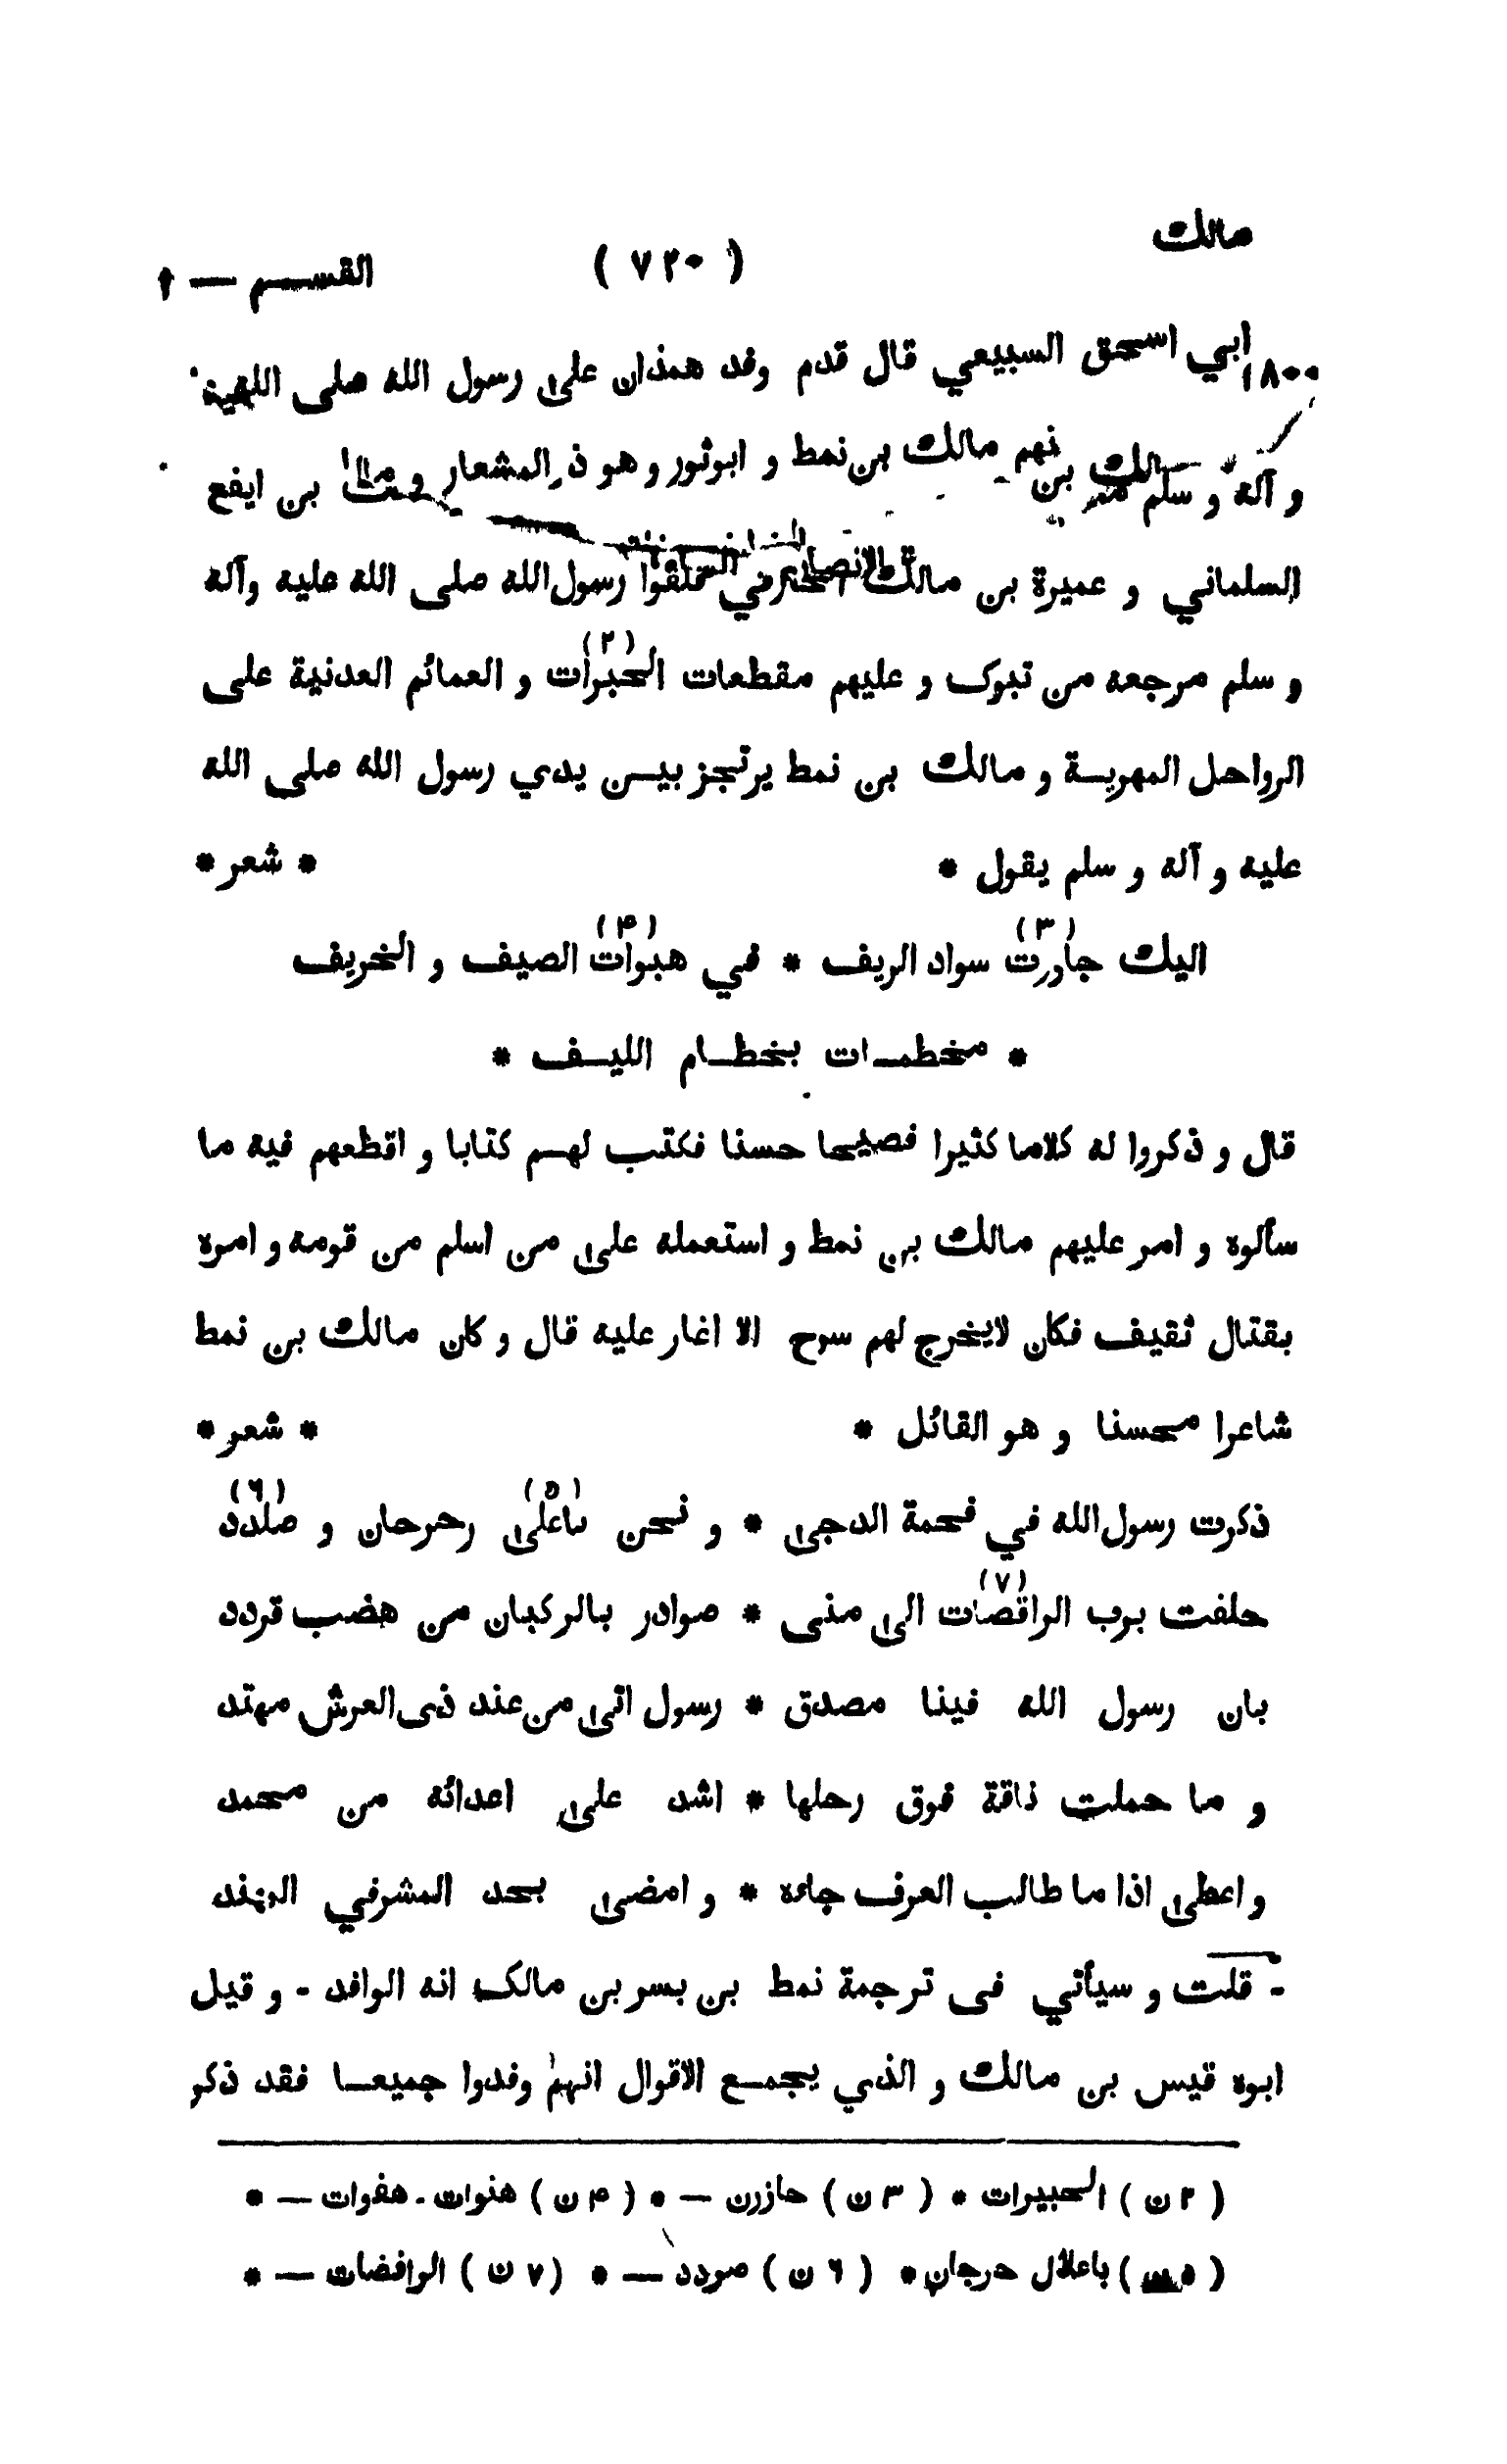 مالك
( ٧٢٠ )
القســم — ١
١٨٠٠
ابي اسحق السبيعي قال قدم وفد همذان على رسول الله صلى الله
و آله و سلم بن نهم مالك بن نمط و ابوثور و هو ذو المشعار و بن ايفع
السلماني و عميرة بن مالك فلقوا رسول الله صلى الله عليه وآله
و سلم مرجعه من تبوك و عليهم مقطعات الحبرات (٢) و العمائم العدنية على
الرواحل المهريــة و مالك بن نمط يرتجز بيــن يدي رسول الله صلى الله
عليه و آله و سلم يقول * * شعر *
اليك جاورت (٣) سواد الريف * في هبوات (۴) الصيف و الخريف
* مخطمــات بخطــام الليــف *
قال و ذكروا له كلاما كثيرا فصيحا حسنا فكتب لهــم كتابا و اقطعهم فيه ما
سألوه و امر عليهم مالك بن نمط و استعمله على من اسلم من قومه و امره
بقتال ثقيف فكان لايخرج لهم سرح الا اغار عليه قال و كان مالك بن نمط
شاعرا محسنا و هو القائل * * شعر *
ذكرت رسول الله في فحمة الدجى * و نحن باعلى (٥) رحرحان و صلدد (٦)
حلفت برب الراقصات (٧) الى منى * صوادر بالركبان من هضب قردد
بان رسول الله فينا مصدق * رسول اتى من عند ذى العرش مهتد
و ما حملت ناقة فوق رحلها * اشد على اعدائه من محمد
و اعطى اذا ما طالب العرف جاءه * و امضى بحد المشرفي المهند
- قلت و سيأتي فى ترجمة نمط بن بسر بن مالك انه الوافد - و قيل
ابوه قيس بن مالك و الذي يجمــع الاقوال انهم وفدوا جميعــا فقد ذكر
( ٢ ن ) الحبيرات * ( ٣ ن ) حازرن — * ( ۴ ن ) هنوات - هفوات — *
( ٥ ) باعلال حرجان * ( ٦ ن ) صردد — * ( ٧ ن ) الرافضات — *